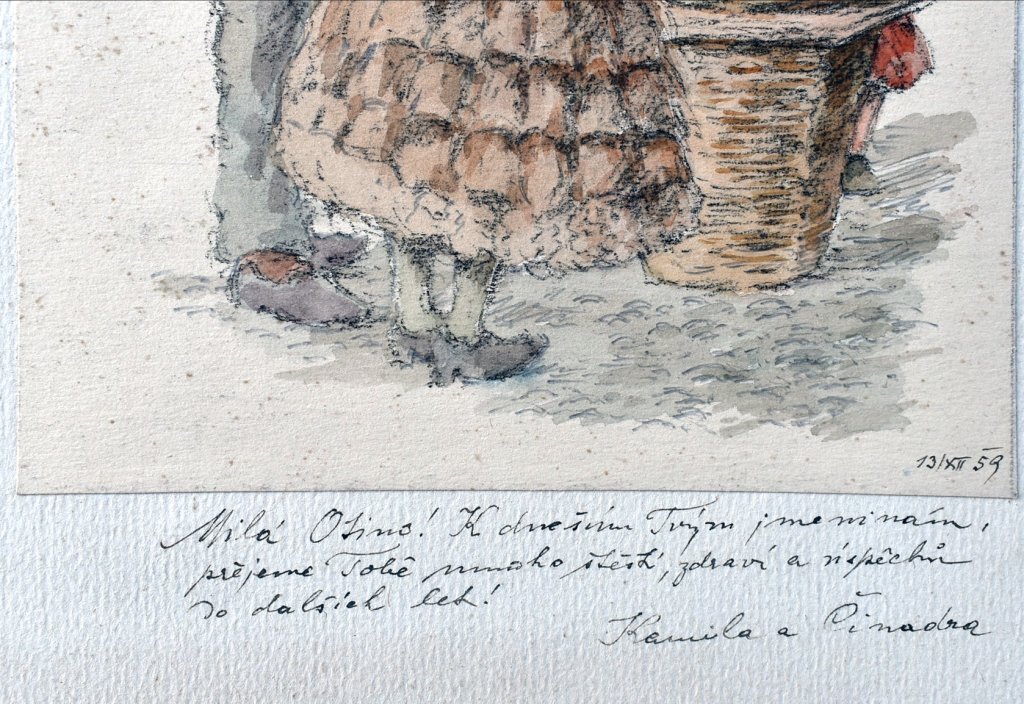 13/XII 59
Milá Otino! K dnešním Tvým jmeninám,
přejeme Tobě mnoho štěstí, zdraví a úspěchů
do dalších let!
Kamila a Činadra